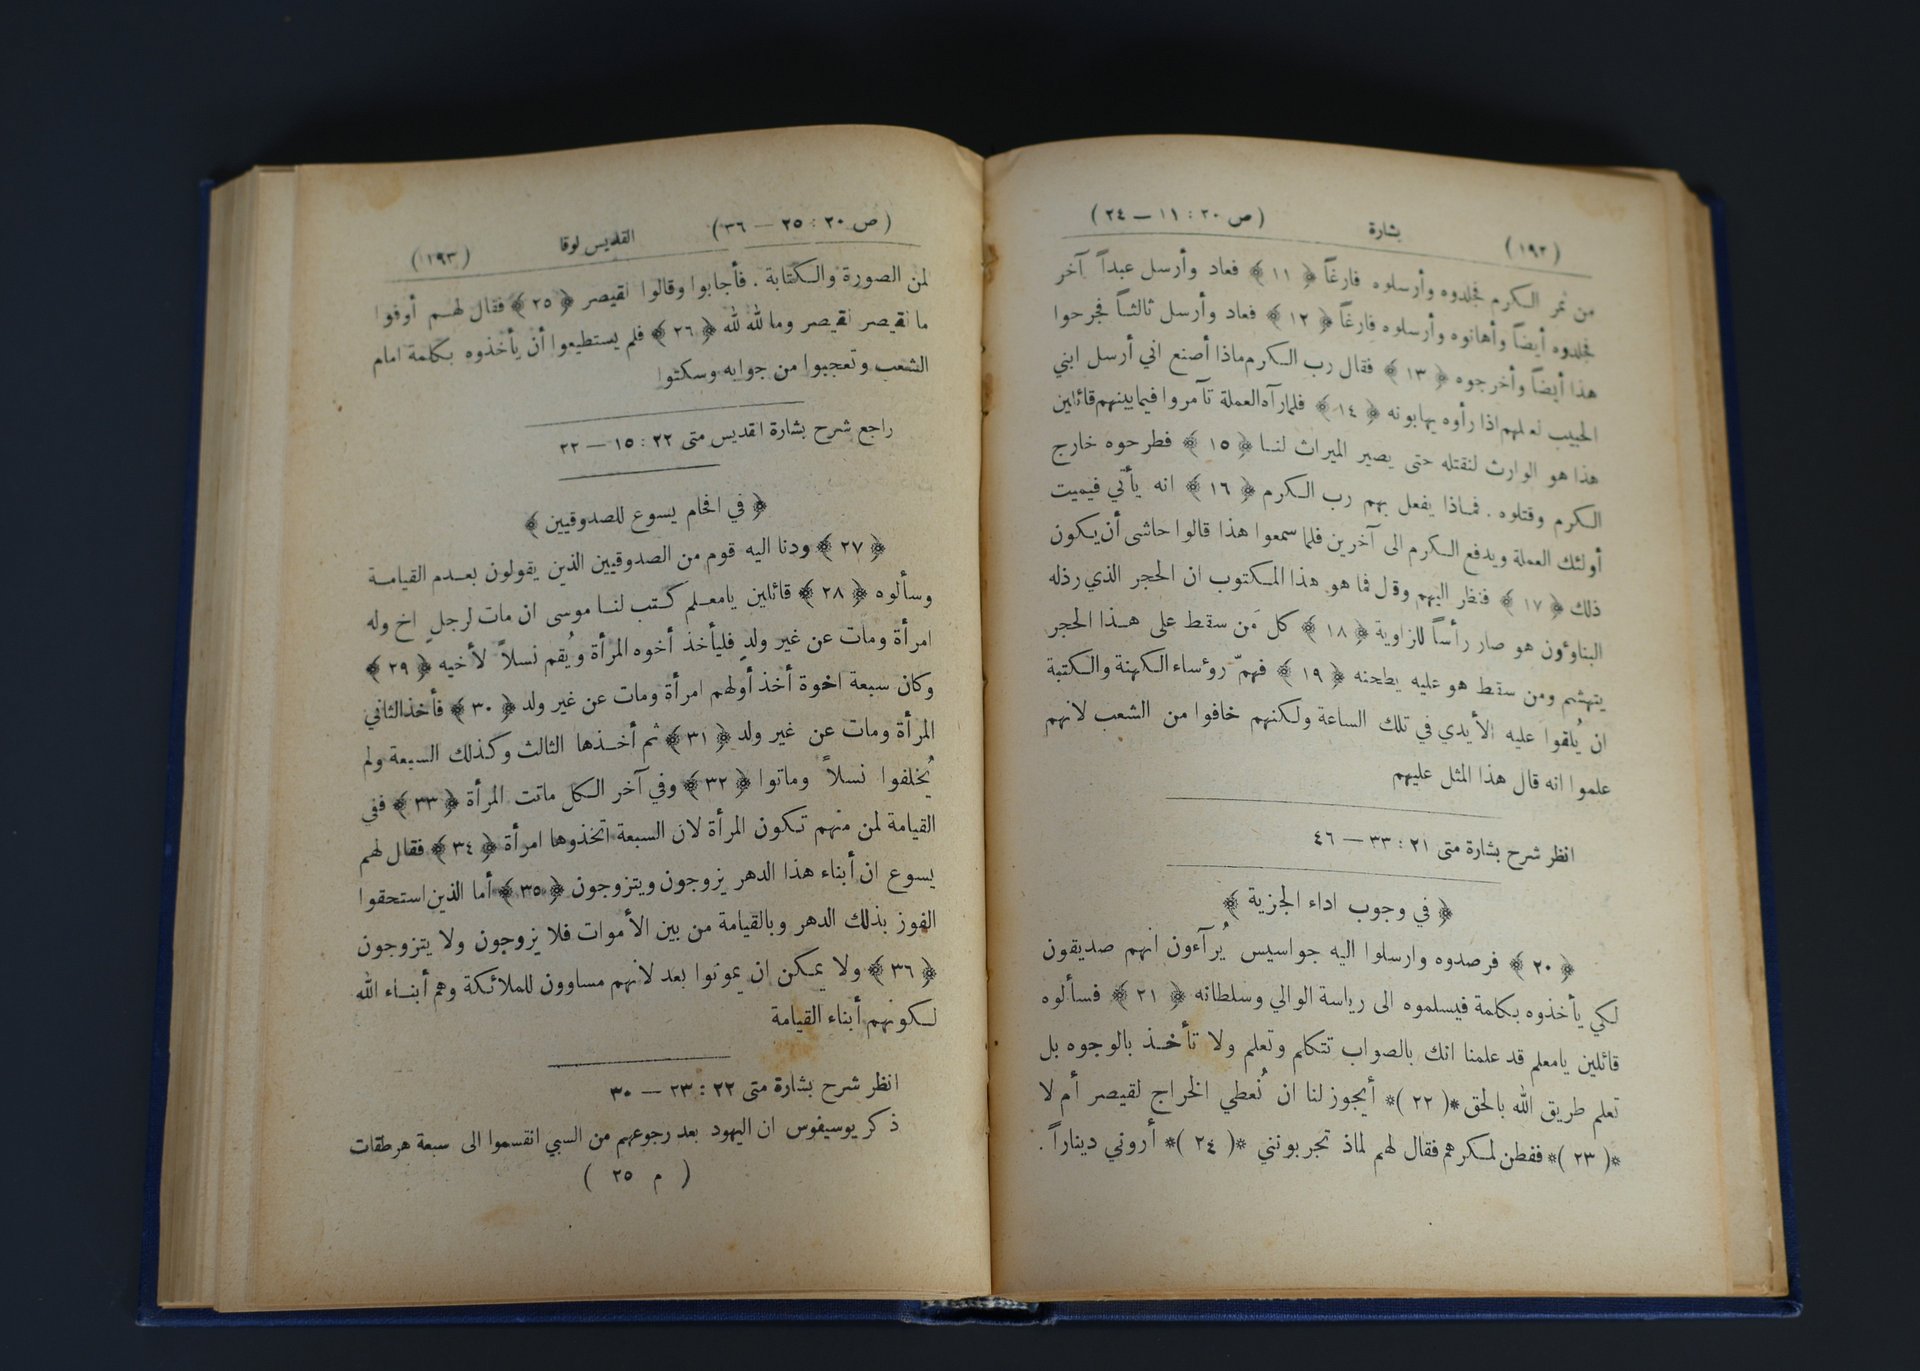 (١٩٢) بشارة (ص ٢٠ : ١١ — ٢٤)
من ثمر الكرم فجلدوه وأرسلوه فارغاً ﴿ ١١ ﴾ فعاد وأرسل عبداً آخر
فجلدوه أيضاً وأهانوه وأرسلوه فارغاً ﴿ ١٢ ﴾ فعاد وأرسل ثالثاً فجرحوا
هذا أيضاً وأخرجوه ﴿ ١٣ ﴾ فقال رب الكرم ماذا أصنع اني أرسل ابني
الحبيب لعلهم اذا رأوه يهابونه ﴿ ١٤ ﴾ فلما رآه العملة تآمروا فيما بينهم قائلين
هذا هو الوارث لنقتله حتى يصير الميراث لنا ﴿ ١٥ ﴾ فطرحوه خارج
الكرم وقتلوه . فماذا يفعل بهم رب الكرم ﴿ ١٦ ﴾ انه يأتي فيميت
أولئك العملة ويدفع الكرم الى آخرين فلما سمعوا هذا قالوا حاشى أن يكون
ذلك ﴿ ١٧ ﴾ فنظر اليهم وقل فما هو هذا المكتوب ان الحجر الذي رذله
البناوؤن هو صار رأساً للزاوية ﴿ ١٨ ﴾ كل مَن سقط على هذا الحجر
يتهشم ومن سقط هو عليه يطحنه ﴿ ١٩ ﴾ فهمّ روؤساء الكهنة والكتبة
ان يُلقوا عليه الأيدي في تلك الساعة ولكنهم خافوا من الشعب لانهم
علموا انه قال هذا المثل عليهم
انظر شرح بشارة متى ٢١ : ٣٣ — ٤٦
﴿ في وجوب اداء الجزية ﴾
﴿ ٢٠ ﴾ فرصدوه وارسلوا اليه جواسيس يُرآءون انهم صديقون
لكي يأخذوه بكلمة فيسلموه الى رياسة الوالي وسلطانه ﴿ ٢١ ﴾ فسألوه
قائلين يامعلم قد علمنا انك بالصواب تتكلم وتعلم ولا تأخذ بالوجوه بل
تعلم طريق الله بالحق *( ٢٢ )* أيجوز لنا ان نُعطي الخراج لقيصر أم لا
*( ٢٣ )* ففطن لمكرهم فقال لهم لماذ تجربونني *( ٢٤ )* أروني ديناراً .
(ص ٢٠ : ٢٥ — ٣٦) القديس لوقا (١٩٣)
لمن الصورة والكتابة . فأجابوا وقالوا لقيصر ﴿ ٢٥ ﴾ فقال لهم أوفوا
ما لقيصر لقيصر وما لله لله ﴿ ٢٦ ﴾ فلم يستطيعوا أن يأخذوه بكلمة امام
الشعب وتعجبوا من جوابه وسكتوا
راجع شرح بشارة القديس متى ٢٢ : ١٥ — ٢٢
﴿ في افحام يسوع للصدوقيين ﴾
﴿ ٢٧ ﴾ ودنا اليه قوم من الصدوقيين الذين يقولون بعدم القيامة
وسألوه ﴿ ٢٨ ﴾ قائلين يامعلم كتب لنا موسى ان مات لرجلٍ اخ وله
امرأة ومات عن غير ولدٍ فليأخذ أخوه المرأة ويُقم نسلاً لأخيه ﴿ ٢٩ ﴾
وكان سبعة اخوة أخذ أولهم امرأة ومات عن غير ولد ﴿ ٣٠ ﴾ فأخذ الثاني
المرأة ومات عن غير ولد ﴿ ٣١ ﴾ ثم أخذها الثالث وكذلك السبعة ولم
يُخلفوا نسلاً وماتوا ﴿ ٣٢ ﴾ وفي آخر الكل ماتت المرأة ﴿ ٣٣ ﴾ ففي
القيامة لمن منهم تكون المرأة لان السبعة اتخذوها امرأة ﴿ ٣٤ ﴾ فقال لهم
يسوع ان أبناء هذا الدهر يزوجون ويتزوجون ﴿ ٣٥ ﴾ أما الذين استحقوا
الفوز بذلك الدهر وبالقيامة من بين الأموات فلا يزوجون ولا يتزوجون
﴿ ٣٦ ﴾ ولا يمكن ان يموتوا بعد لانهم مساوون للملائكة وهم أبناء الله
لكونهم أبناء القيامة
انظر شرح بشارة متى ٢٢ : ٢٣ — ٣٠
ذكر يوسيفوس ان اليهود بعد رجوعهم من السبي انقسموا الى سبعة هرطقات
( م ٢٥ )